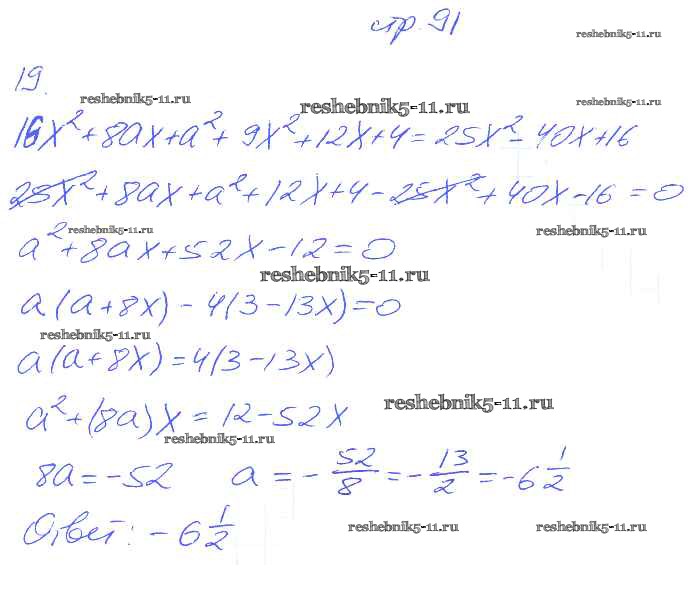 стр. 91
reshebnik5-11.ru
19.
reshebnik5-11.ru reshebnik5-11.ru reshebnik5-11.ru
16x² + 8ax + a² + 9x² + 12x + 4 = 25x² - 40x + 16
25x² + 8ax + a² + 12x + 4 - 25x² + 40x - 16 = 0
reshebnik5-11.ru reshebnik5-11.ru
a² + 8ax + 52x - 12 = 0
reshebnik5-11.ru
a(a + 8x) - 4(3 - 13x) = 0
reshebnik5-11.ru
a(a + 8x) = 4(3 - 13x)
reshebnik5-11.ru
a² + (8a)x = 12 - 52x
reshebnik5-11.ru
8a = -52 a = - 52/8 = - 13/2 = -6 1/2
Ответ: -6 1/2
reshebnik5-11.ru reshebnik5-11.ru